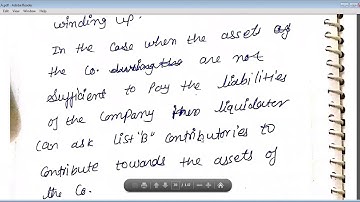 winding up.
In the Case when the assets of
the Co. are not
Sufficient to Pay the liabilities
of the Company liquidater
can ask List "B" Contributories to
Contribute towards the assets of
the Co.